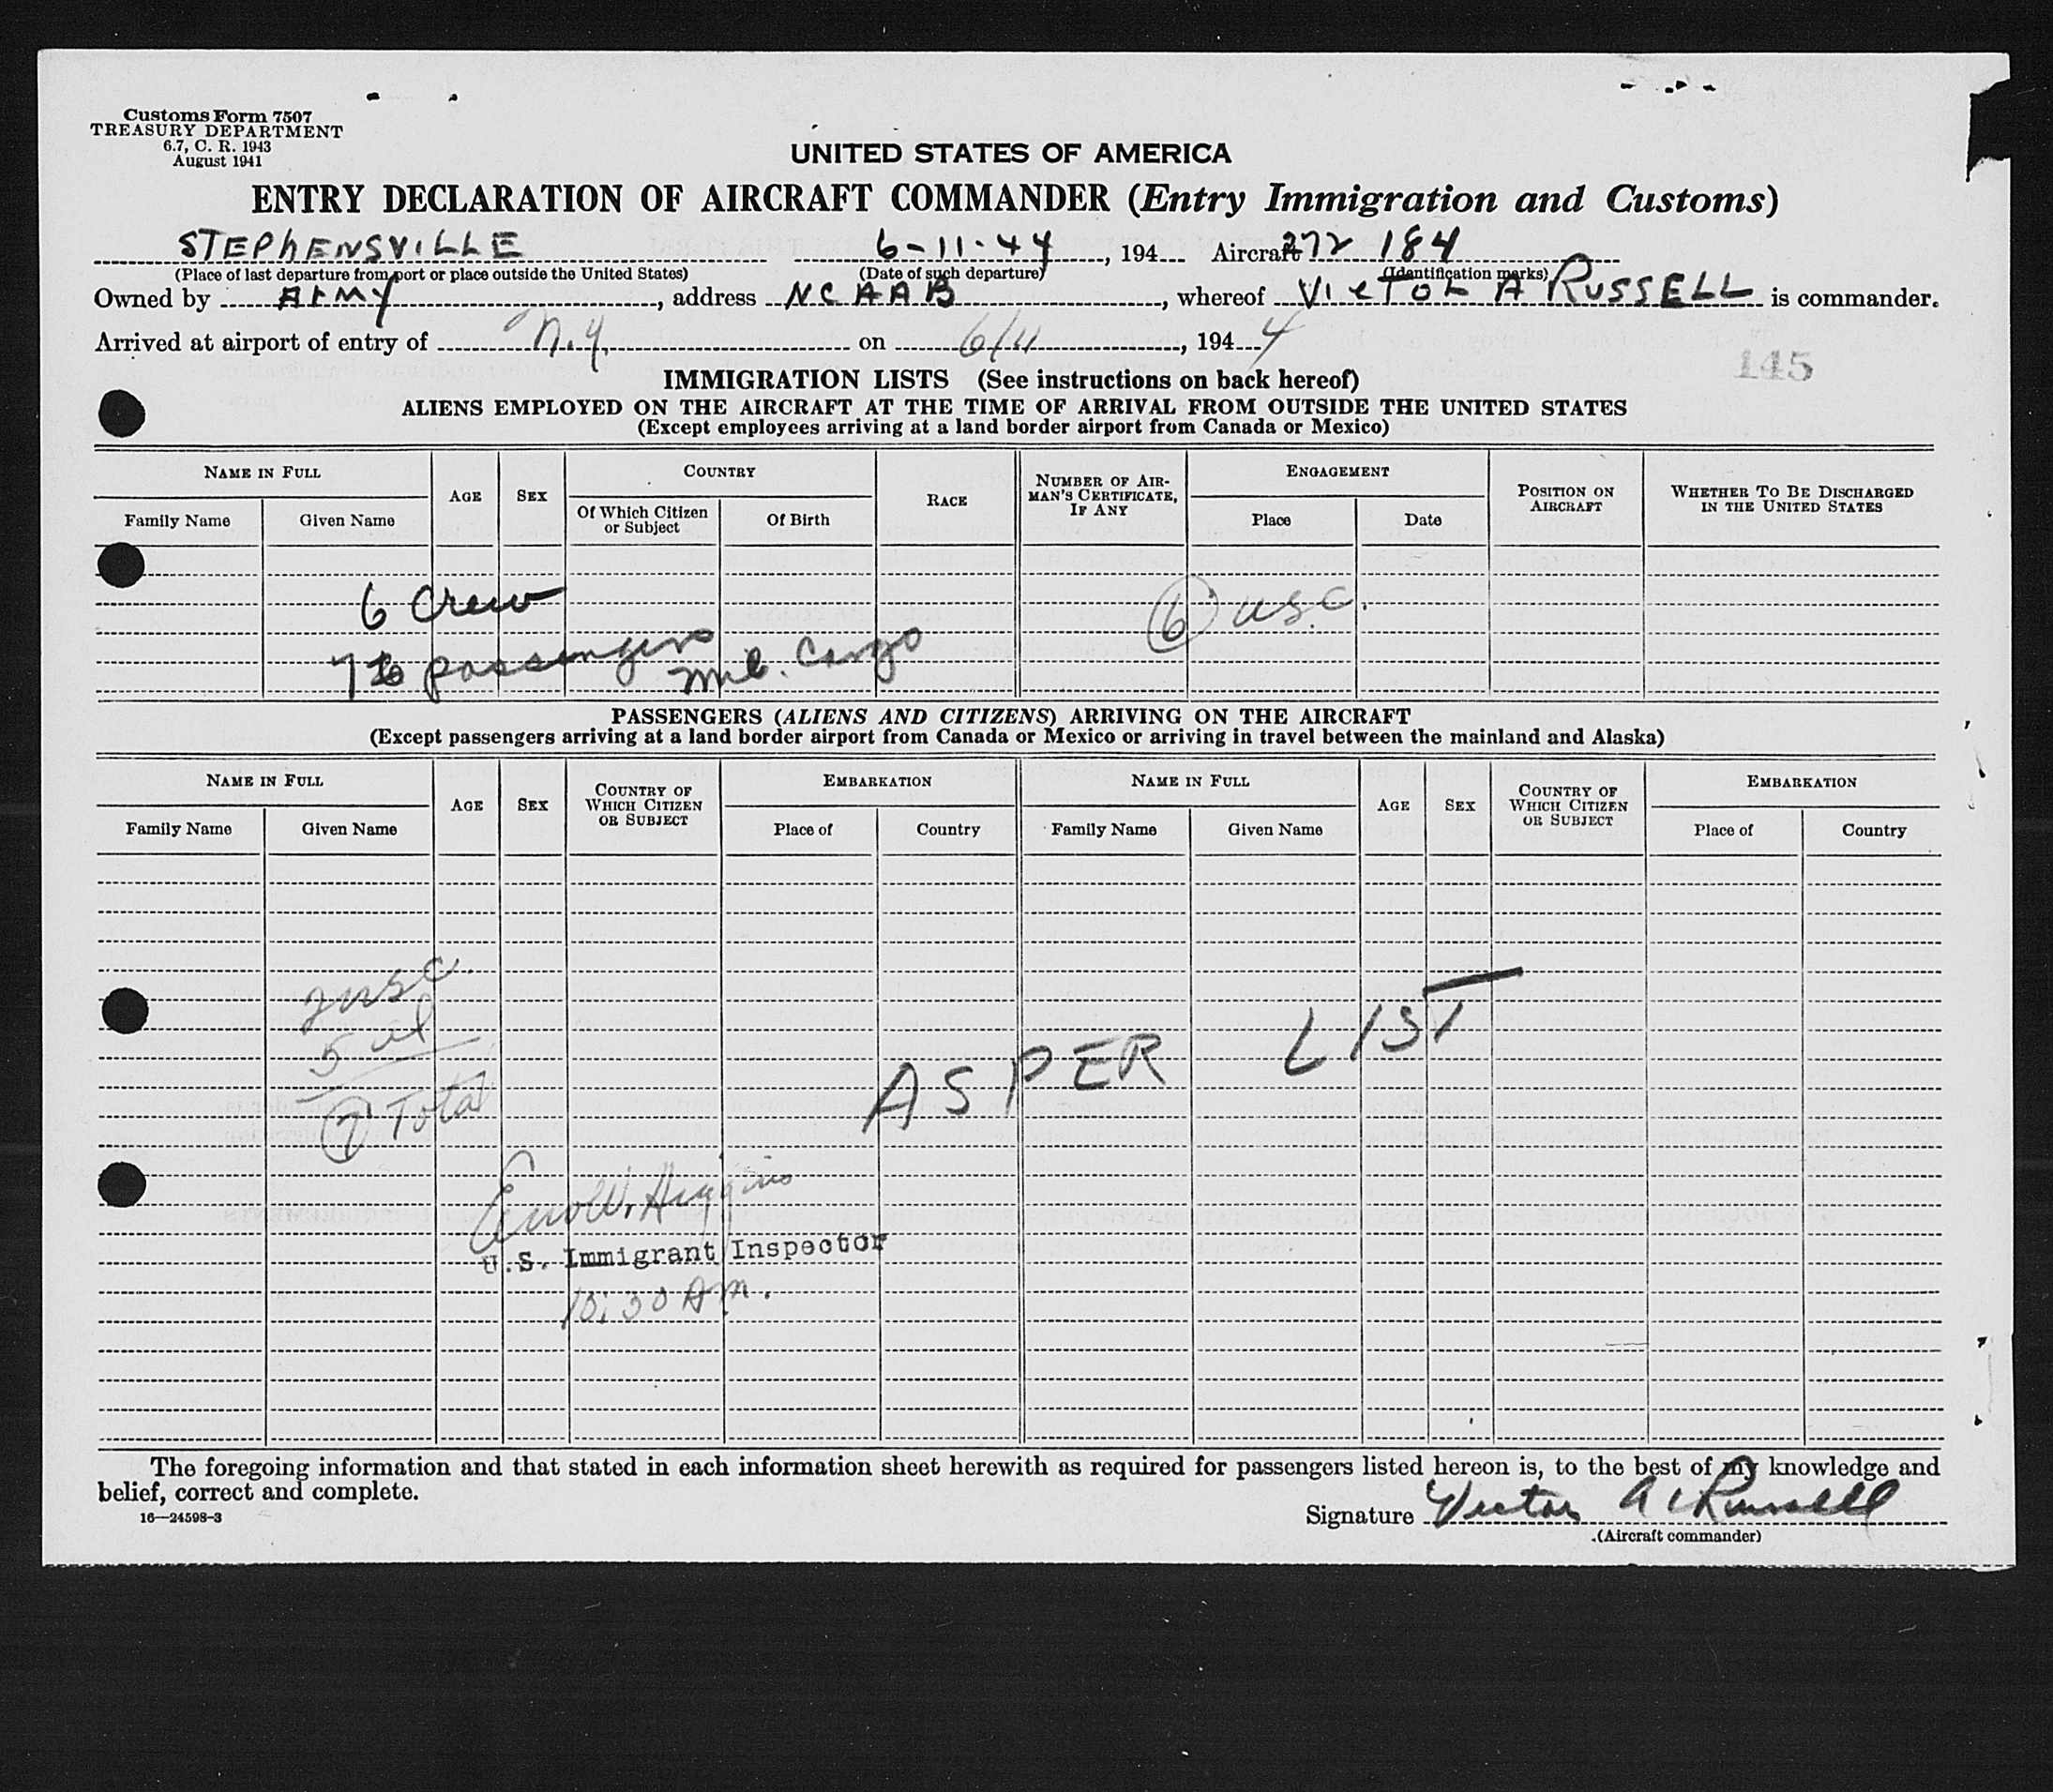 Customs Form 7507
TREASURY DEPARTMENT
6.7, C. R. 1943
August 1941
UNITED STATES OF AMERICA
ENTRY DECLARATION OF AIRCRAFT COMMANDER (Entry Immigration and Customs)
STEPHENSVILLE 6-11-44, 194 Aircraft 272 184
(Place of last departure from port or place outside the United States) (Date of such departure) (Identification marks)
Owned by ARMY, address NCAAB, whereof VICTOR A RUSSELL is commander.
Arrived at airport of entry of N.Y. on 6/11, 1944
145
IMMIGRATION LISTS (See instructions on back hereof)
ALIENS EMPLOYED ON THE AIRCRAFT AT THE TIME OF ARRIVAL FROM OUTSIDE THE UNITED STATES
(Except employees arriving at a land border airport from Canada or Mexico)
NAME IN FULL AGE SEX COUNTRY RACE NUMBER OF AIRMAN'S CERTIFICATE, IF ANY ENGAGEMENT POSITION ON AIRCRAFT WHETHER TO BE DISCHARGED IN THE UNITED STATES
Family Name Given Name Of Which Citizen or Subject Of Birth Place Date
6 Crew (6) USC.
7 passengers
Mil. Cargo
PASSENGERS (ALIENS AND CITIZENS) ARRIVING ON THE AIRCRAFT
(Except passengers arriving at a land border airport from Canada or Mexico or arriving in travel between the mainland and Alaska)
NAME IN FULL AGE SEX COUNTRY OF WHICH CITIZEN OR SUBJECT EMBARKATION NAME IN FULL AGE SEX COUNTRY OF WHICH CITIZEN OR SUBJECT EMBARKATION
Family Name Given Name Place of Country Family Name Given Name Place of Country
2 USC.
5 al
(7) Total
AS PER LIST
Higgins
U.S. Immigrant Inspector
10:30 AM.
The foregoing information and that stated in each information sheet herewith as required for passengers listed hereon is, to the best of my knowledge and
belief, correct and complete.
16—24598-3
Signature Victor A Russell
(Aircraft commander)